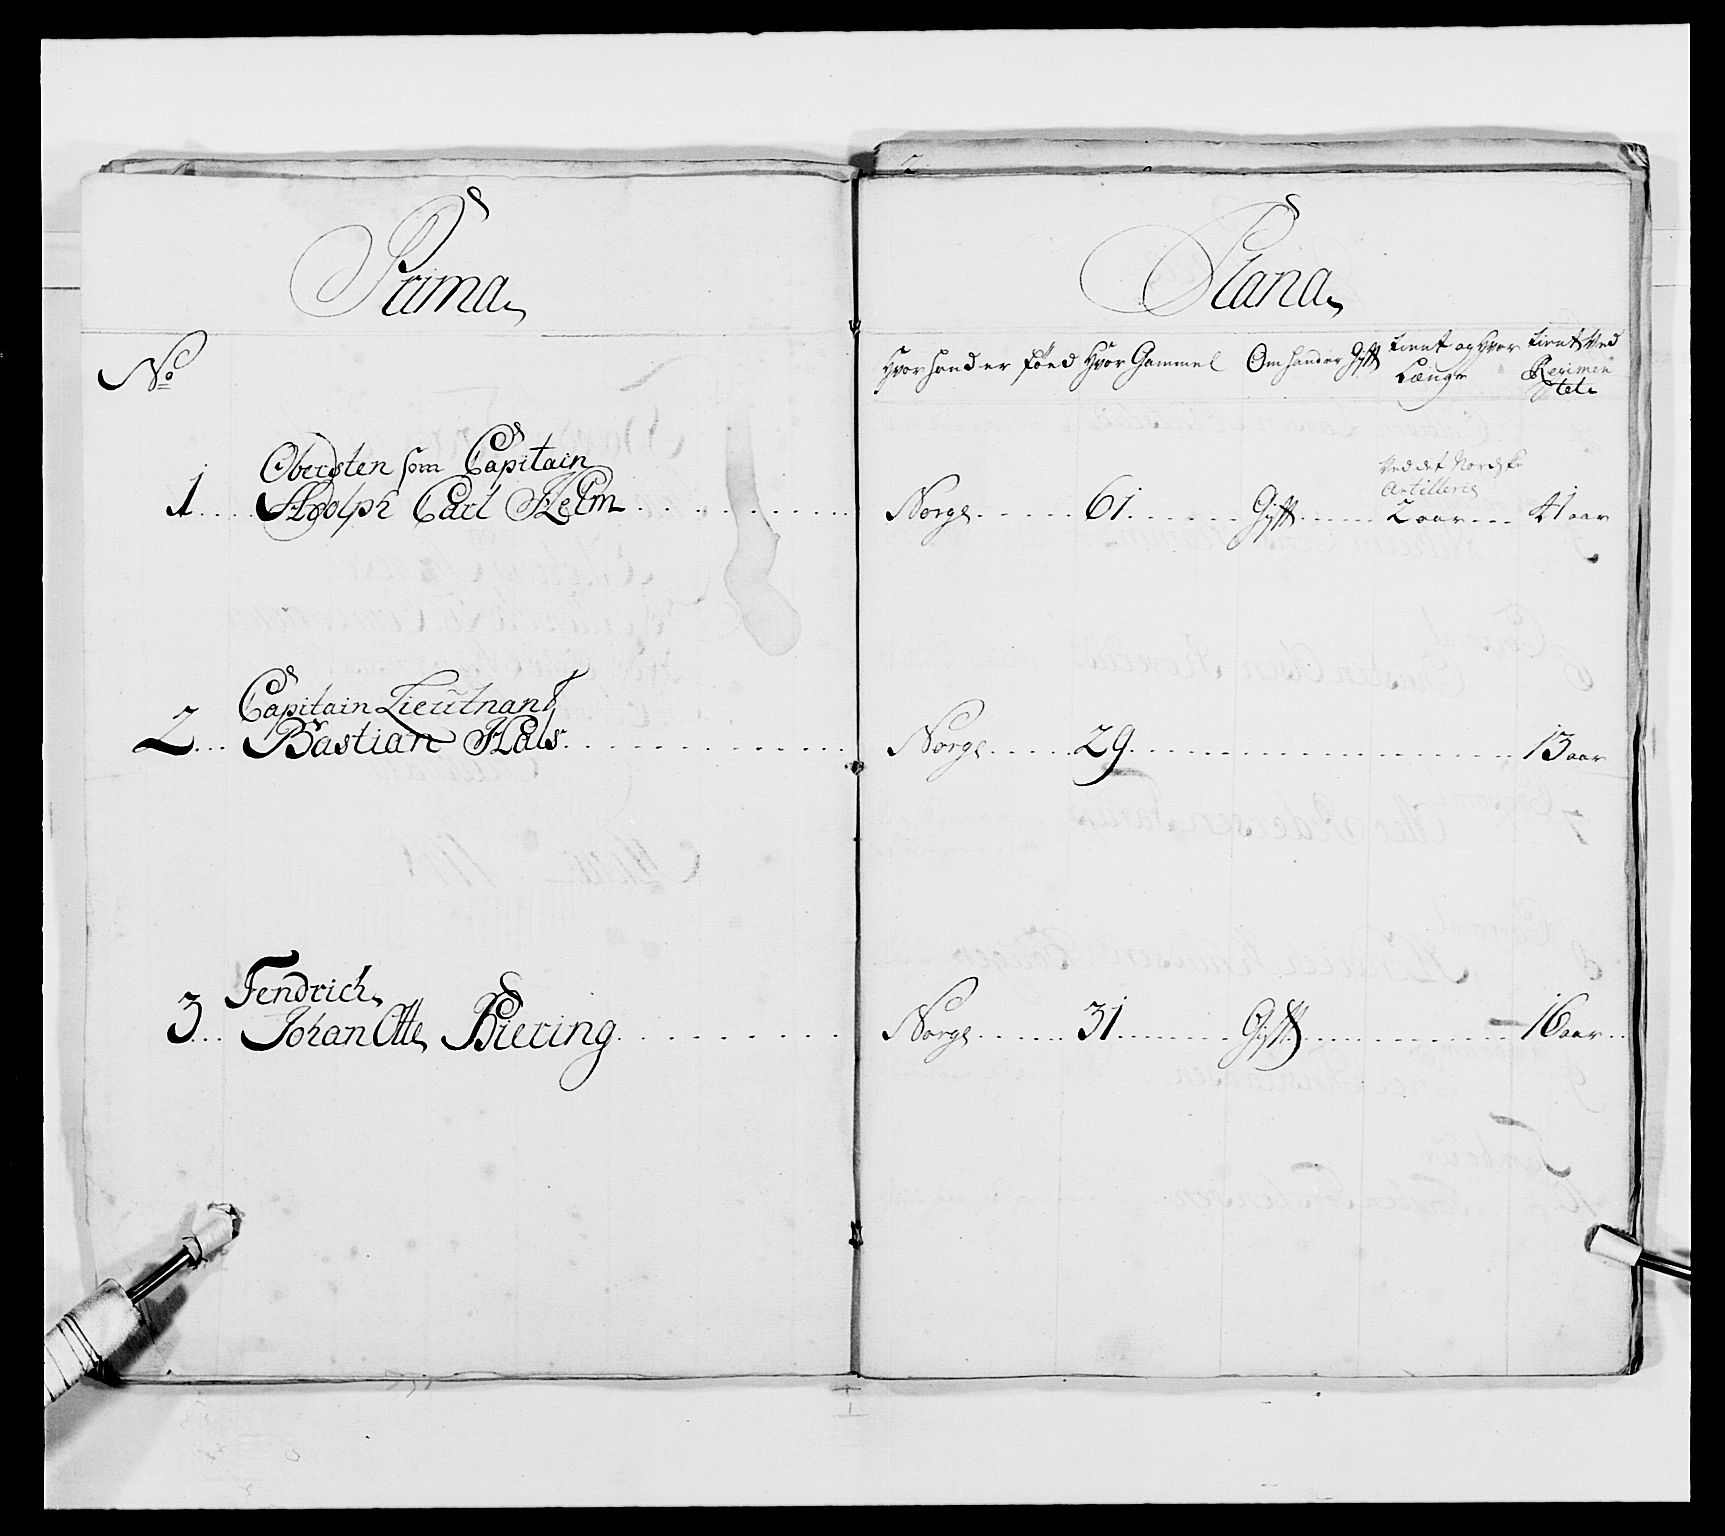 Prima
Plana
2
No
Hvor hand er föed
Hvor Gammel
Om hand er Gifft
tient og hvor Længe
tient ved Regimentete
Obersten som Capitain
1 Adolph Carl Helm
Norge 61 Gifft
ved det Nordske
Artillerie
2 aar
41 aar
Capitain Lieutnant
2 Bastian Hals
Norge 29
13 aar
Fendrich
3 Johan Otte Biering
Norge 31 Gifft
16 aar